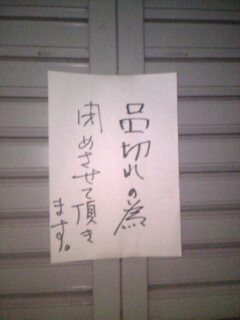 品切れの為
閉めさせて頂き
ます。